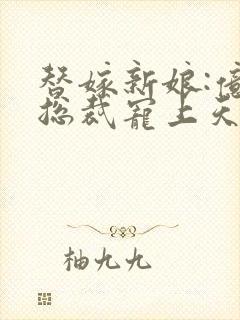 替嫁新娘:億
总裁宠上天
柚九九